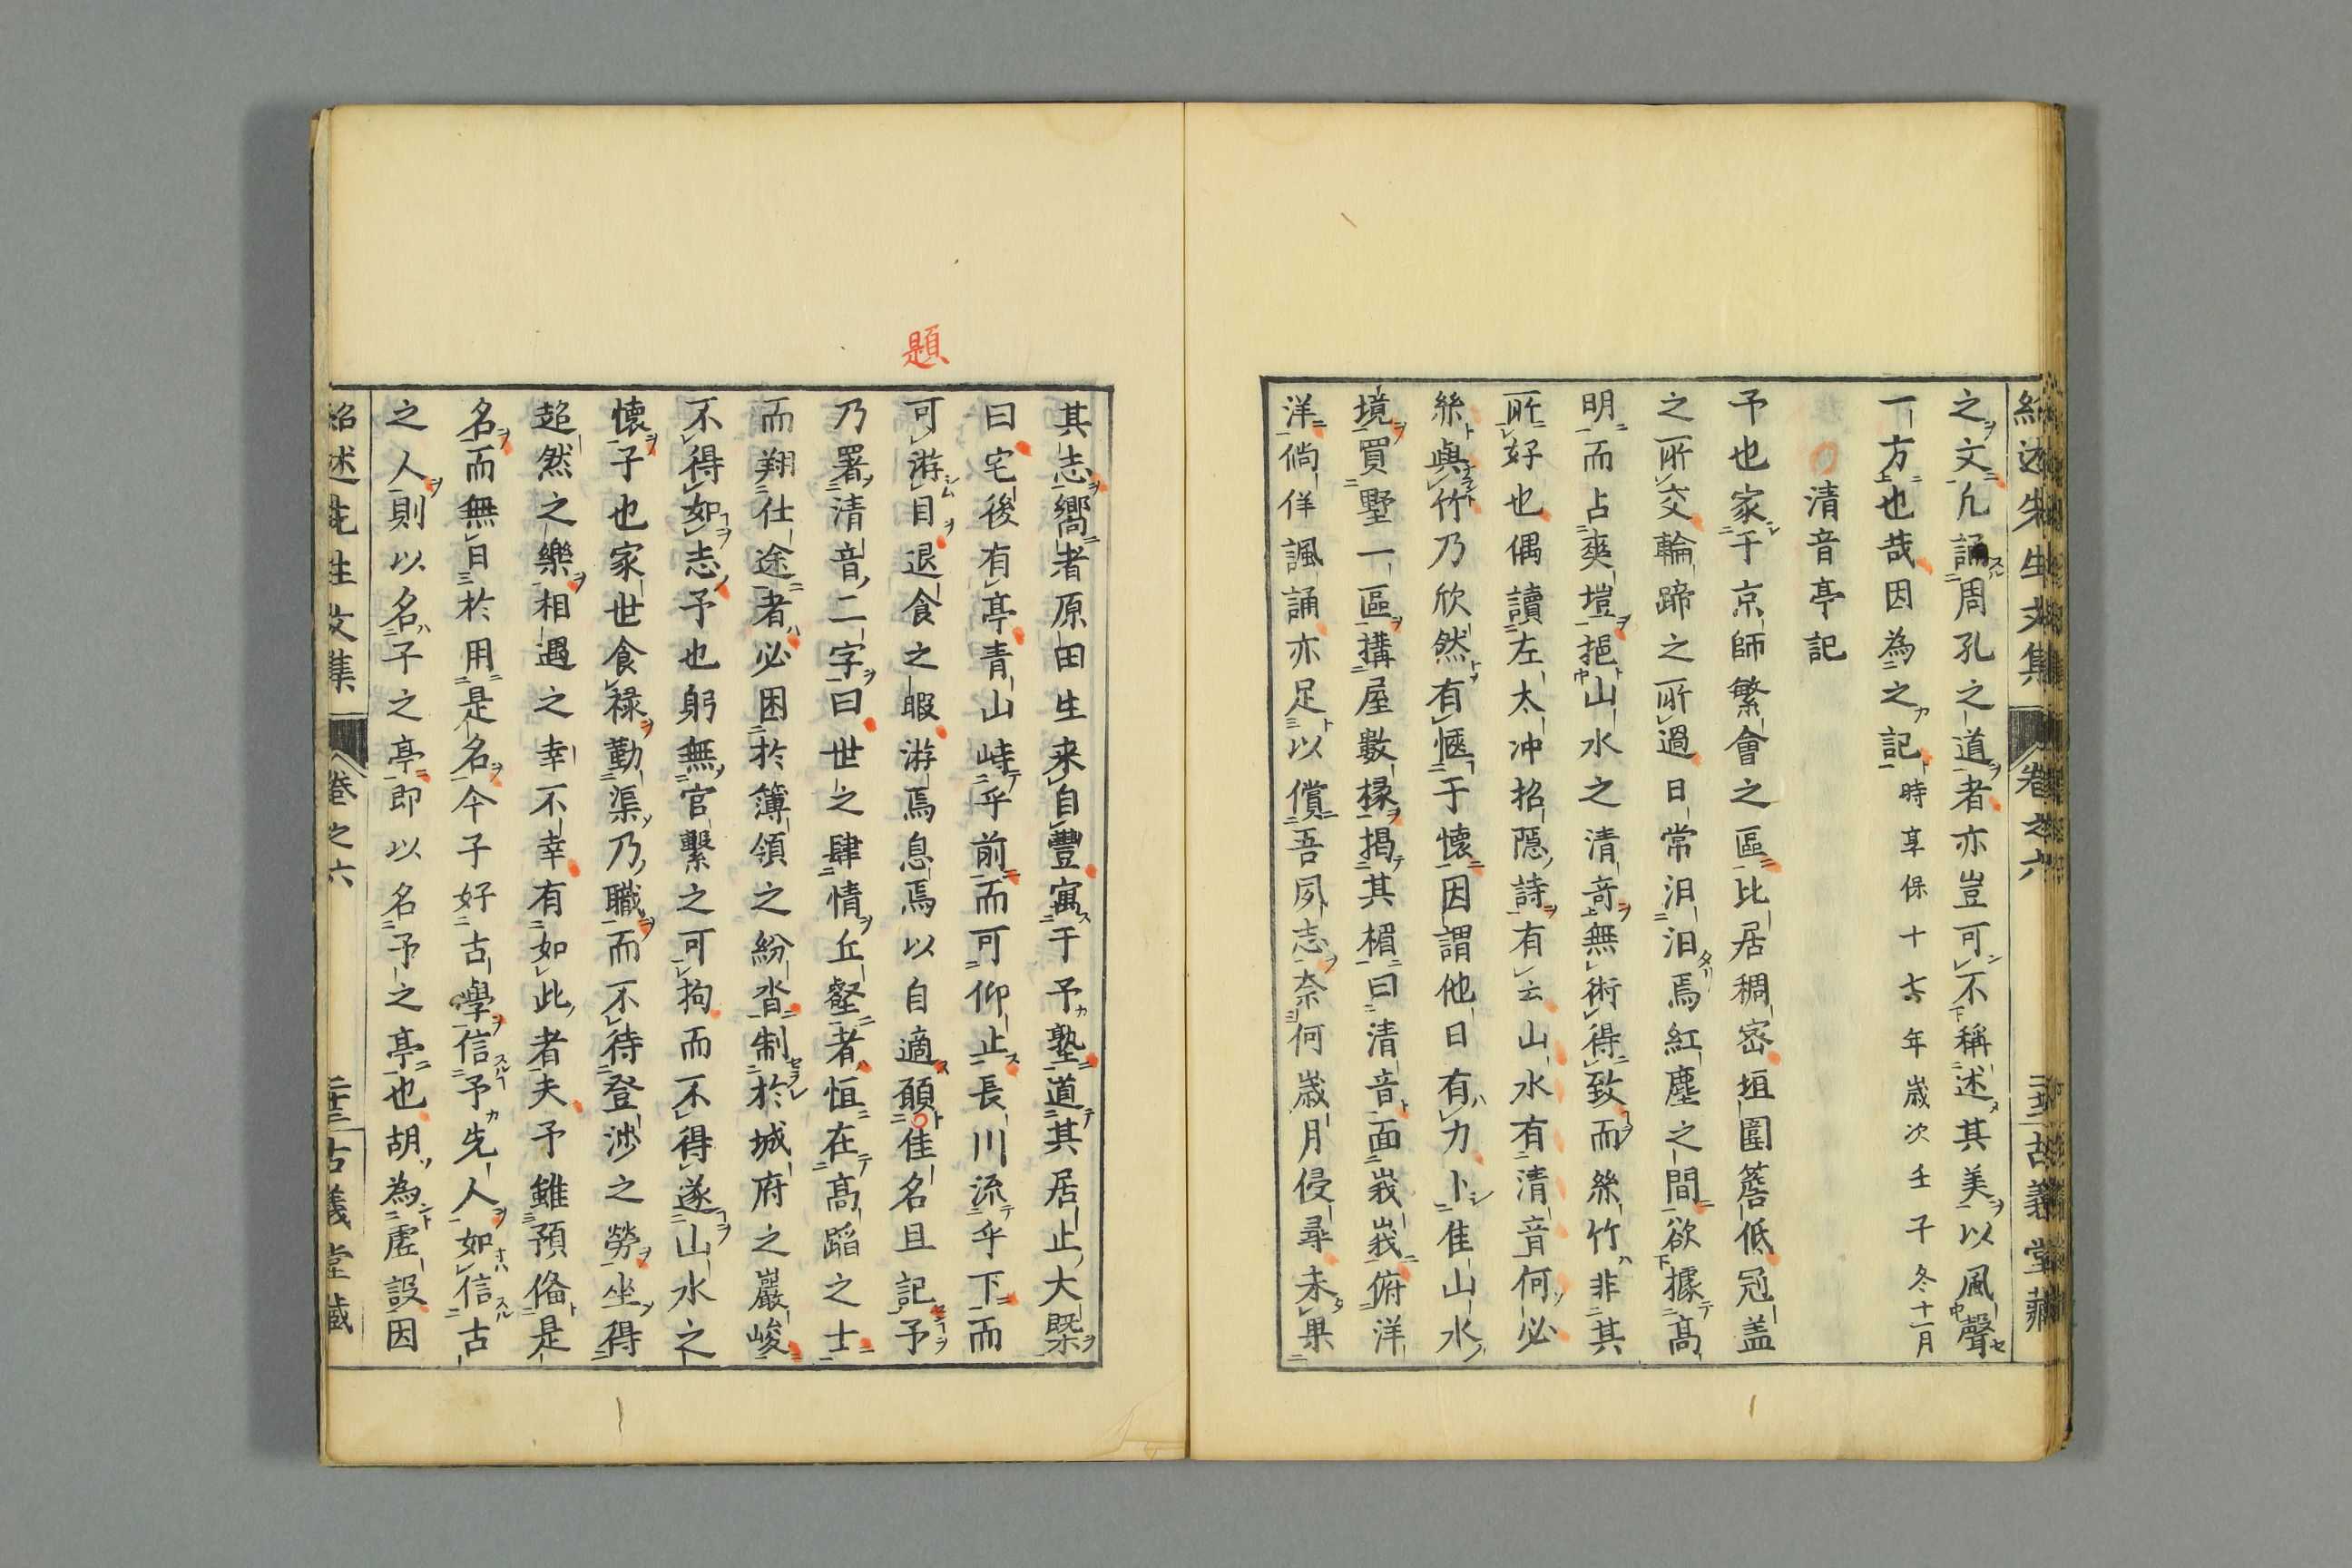 紹述先生文集 卷之六 古義堂藏
之文凢誦周孔之道者亦豈可不稱述其美以風聲
一方也哉因為之記時享保十七年歳次壬子冬十一月
清音亭記
予也家于京師繁會之區比居稠宻垣圍簷低冠盖
之所交輪蹄之所過日常汨汨焉紅塵之間欲據髙
明而占爽塏挹山水之清竒無術得致而絲竹非其
所好也偶讀左太冲招隠詩有云山水有清音何必
絲與竹乃欣然有愜于懷因謂他日有力卜佳山水
境買墅一區搆屋數椽揭其楣曰清音面峩峩俯洋
洋倘佯諷誦亦足以償吾夙志奈何歳月侵尋未果
其志嚮者原田生来自豐寓于予塾道其居止大槩
曰宅後有亭青山峙乎前而可仰止長川流乎下而
題
可游目退食之暇游焉息焉以自適願佳名且記予
乃署清音二字曰世之肆情丘壑者恒在髙蹈之士
而翔仕途者必困於簿領之紛沓制於城府之巖峻
不得如志予也躬無官繫之可拘而不得遂山水之
懷子也家世食禄勤渠乃職而不待登渉之勞坐得
超然之樂相遇之幸不幸有如此者夫予雖預俻是
名而無日於用是名今子好古學信予先人如信古
之人則以名子之亭即以名予之亭也胡為虚設因
紹述先生文集 卷之六 二十三 古義堂藏